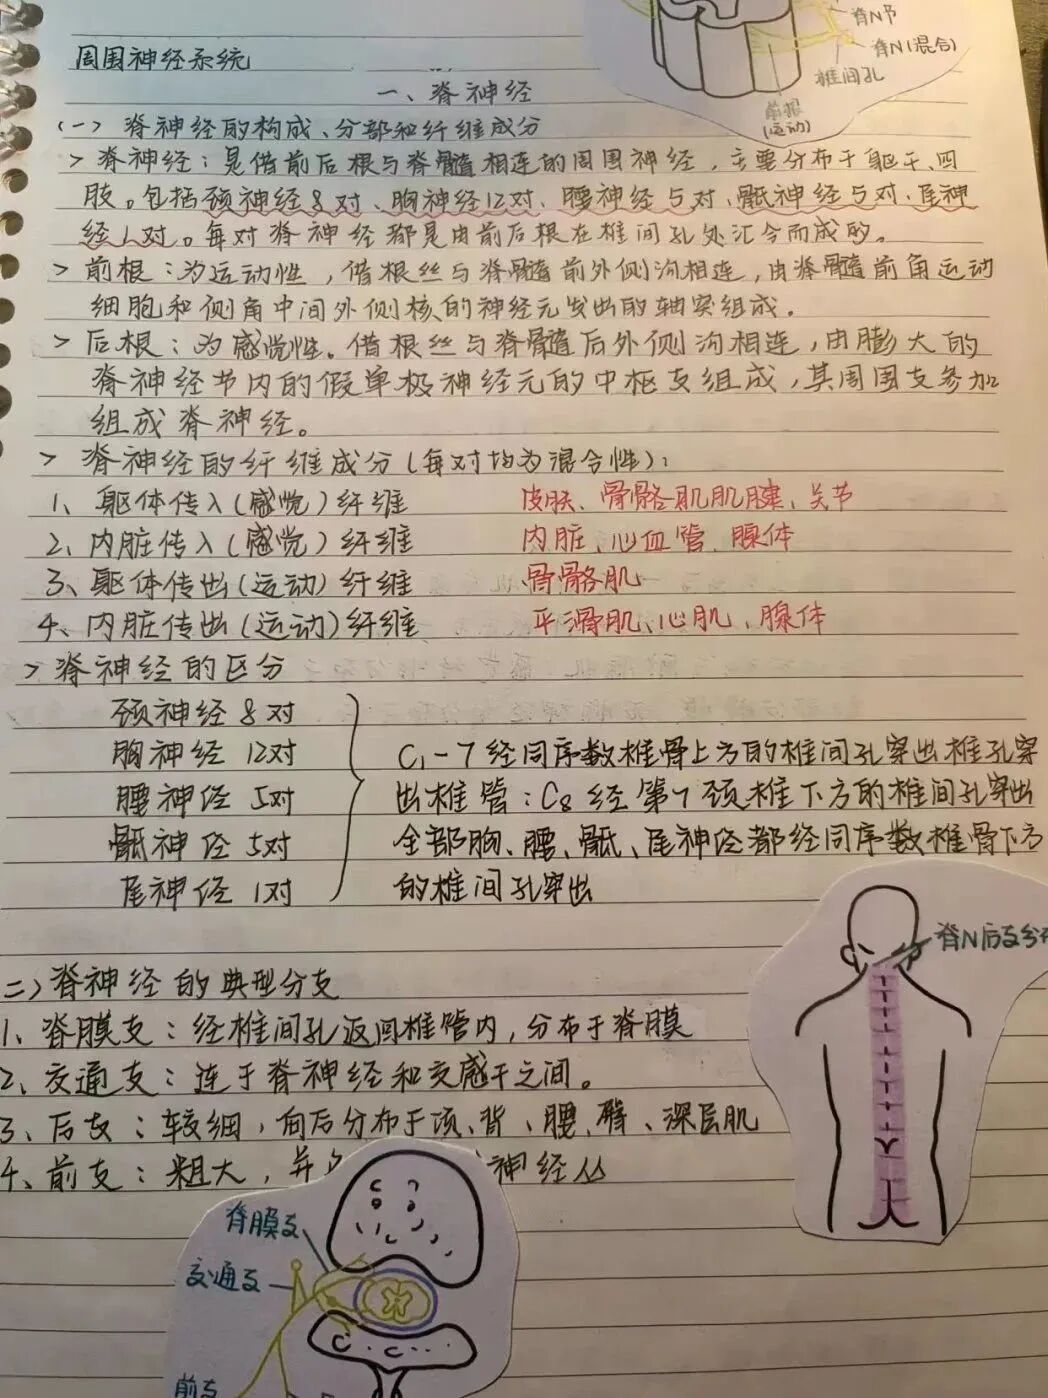 脊N节
脊N(混合)
椎间孔
前根
(运动)
周围神经系统
一、脊神经
(一) 脊神经的构成、分部和纤维成分
> 脊神经：是借前后根与脊髓相连的周围神经，主要分布于躯干、四
肢。包括颈神经8对、胸神经12对、腰神经5对、骶神经5对、尾神
经1对。每对脊神经都是由前后根在椎间孔处汇合而成的。
> 前根：为运动性，借根丝与脊髓前外侧沟相连，由脊髓前角运动
细胞和侧角中间外侧核的神经元发出的轴突组成。
> 后根：为感觉性。借根丝与脊髓后外侧沟相连，由膨大的
脊神经节内的假单极神经元的中枢支组成，其周围支参加
组成脊神经。
> 脊神经的纤维成分(每对均为混合性)：
1、躯体传入(感觉)纤维 皮肤、骨骼肌肌腱、关节
2、内脏传入(感觉)纤维 内脏、心血管、腺体
3、躯体传出(运动)纤维 骨骼肌
4、内脏传出(运动)纤维 平滑肌、心肌、腺体
> 脊神经的区分
颈神经8对
胸神经 12对
腰神经 5对
骶神经 5对
尾神经 1对
C1-7经同序数椎骨上方的椎间孔穿出椎孔穿
出椎管；C8经第7颈椎下方的椎间孔穿出
全部胸、腰、骶、尾神经都经同序数椎骨下方
的椎间孔穿出
脊N后支分
二)脊神经的典型分支
1、脊膜支：经椎间孔返回椎管内，分布于脊膜
2、交通支：连于脊神经和交感干之间。
3、后支：较细，向后分布于项、背、腰、臀、深层肌
4、前支：粗大，并 神经丛
脊膜支
交通支
前支